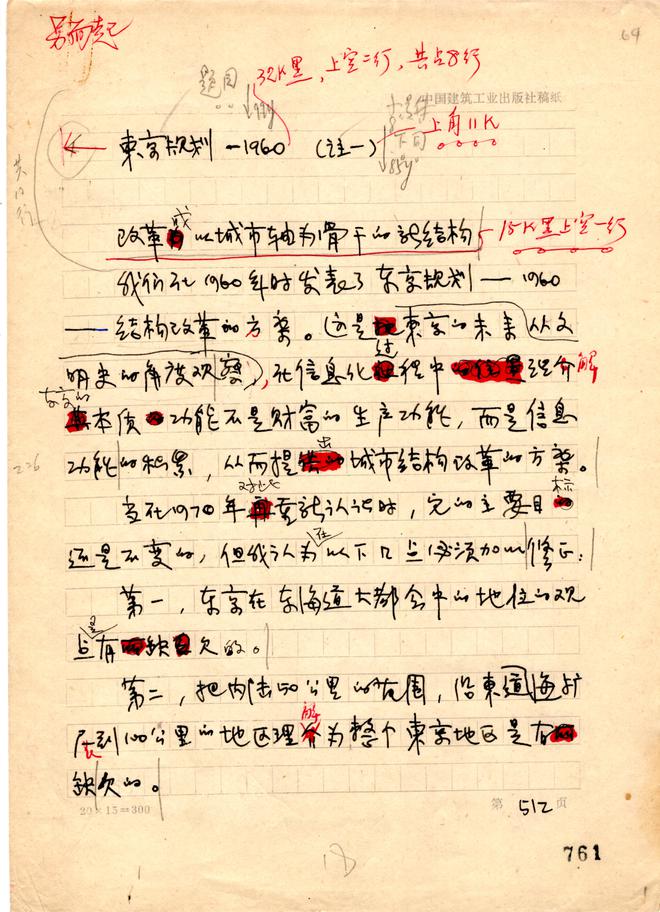 另面起
64
题目 32K黑，上空二行，共占8行
中国建筑工业出版社稿纸
東京规划—1960 （注一）
上角11K
共占行
改革成以城市轴为骨干的新结构 15K黑上空一行
我们在1960年时发表了东京规划——1960
——结构改革的方案。这是東京的未来从文
明史的角度观察，在信息化过程中理解
东京的本质功能不是财富的生产功能，而是信息
功能的积累，从而提出城市结构改革的方案。
在1970年对此重新认识时，它的主要目标
还是不变的，但我认为在以下几点必须加以修正：
第一，东京在东海道大都会中的地位的观
点是有欠缺的。
第二，把内陆50公里的范围，沿東海道扩
展到100公里的地区理解为整个東京地区是有
缺欠的。
20×15=300
第 512 页
18
761